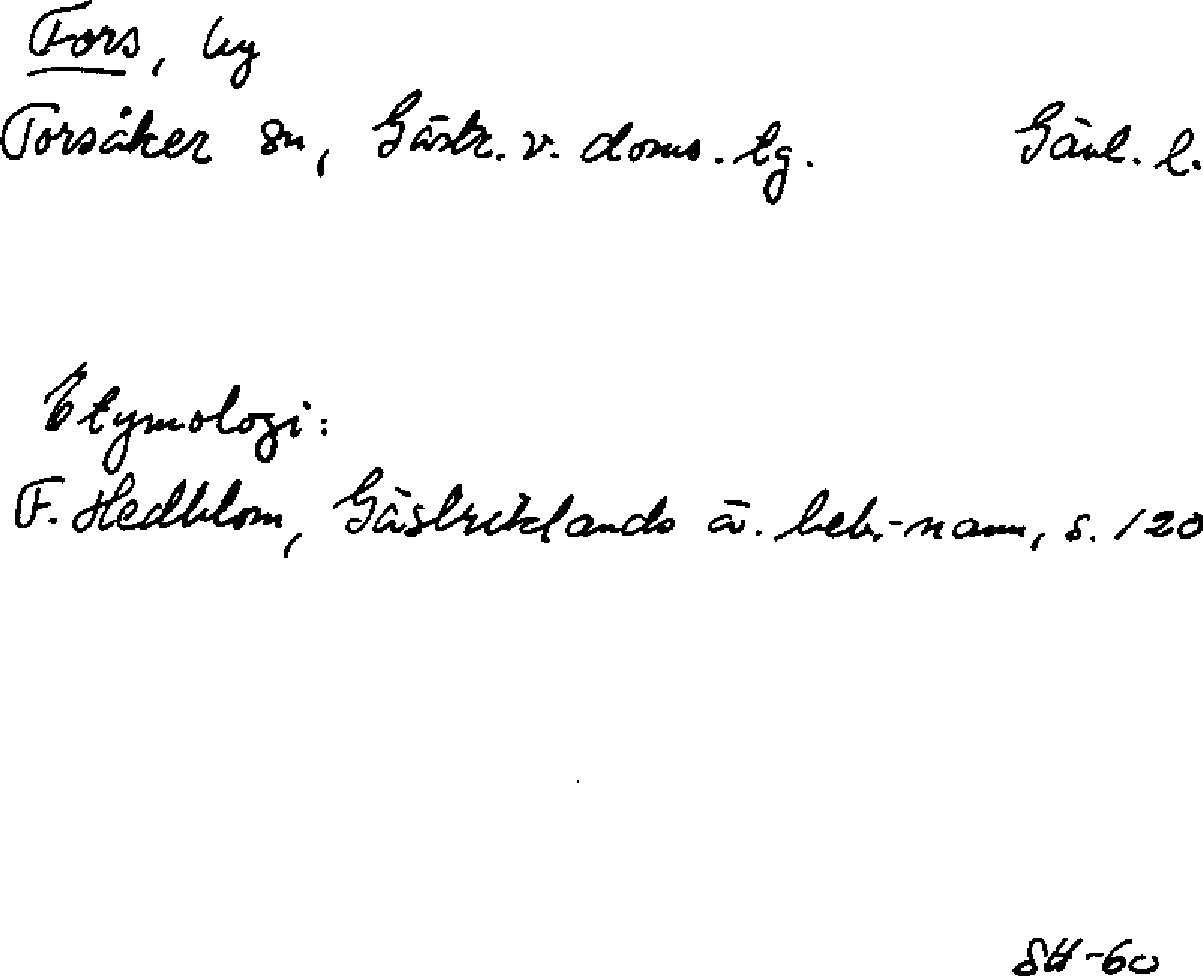 Fors, by
Torsåker sn, Gästr. v. doms. tg. Gävl. l.
Etymologi:
F. Hedblom, Gästriklands ä. beb.-namn, s. 120
SH-60